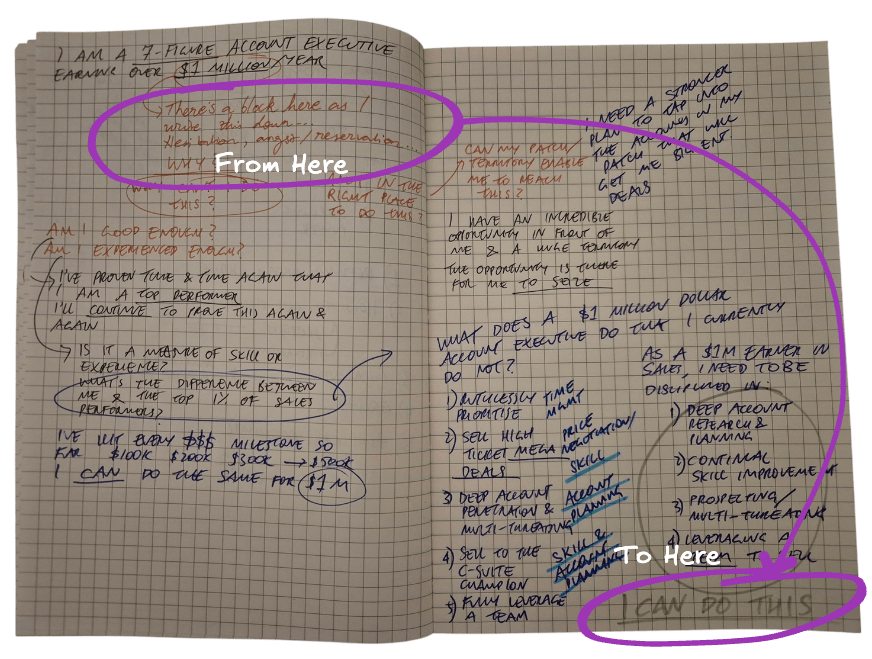 I AM A 7-FIGURE ACCOUNT EXECUTIVE
EARNING OVER $1 MILLION/YEAR
There's a block here as I
write this down...
Hesitation, angst/reservation...
WHY
From Here
WHY CAN'T I DO
THIS?
IN THE
RIGHT PLACE
TO DO THIS?
AM I GOOD ENOUGH?
AM I EXPERIENCED ENOUGH?
I'VE PROVEN TIME & TIME AGAIN THAT
I AM A TOP PERFORMER
I'LL CONTINUE TO PROVE THIS AGAIN &
AGAIN
IS IT A MEASURE OF SKILL OR
EXPERIENCE?
WHAT'S THE DIFFERENCE BETWEEN
ME & THE TOP 1% OF SALES
PERFORMERS?
I'VE HIT EVERY $$$ MILESTONE SO
FAR $100K $200K $300K → $500K
I CAN DO THE SAME FOR $1M
CAN MY PATCH/
TERRITORY ENABLE
ME TO REACH
THIS?
I NEED A STRONGER
PLAN TO TAP INTO
THE ACCOUNTS IN MY
PATCH THAT WILL
GET ME BIG ENT.
DEALS
I HAVE AN INCREDIBLE
OPPORTUNITY IN FRONT OF
ME & A HUGE TERRITORY
THE OPPORTUNITY IS THERE
FOR ME TO SEIZE
WHAT DOES A $1 MILLION DOLLAR
ACCOUNT EXECUTIVE DO THAT I CURRENTLY
DO NOT?
1) RUTHLESSLY TIME
PRIORITISE MGMT
2) SELL HIGH PRICE
TICKET MEGA NEGOTIATION/
DEALS SKILL
3) DEEP ACCOUNT ACCOUNT
PENETRATION & PLANNING
MULTI-THREATING
4) SELL TO THE SKILL &
C-SUITE ACCOUNT
CHAMPION PLANNING
5) FULLY LEVERAGE
A TEAM
AS A $1M EARNER IN
SALES, I NEED TO BE
DISCIPLINED IN:
1) DEEP ACCOUNT
RESEARCH &
PLANNING
2) CONTINUAL
SKILL IMPROVEMENT
3) PROSPECTING/
MULTI-THREATING
4) LEVERAGING A
TEAM TO SELL
To Here
I CAN DO THIS